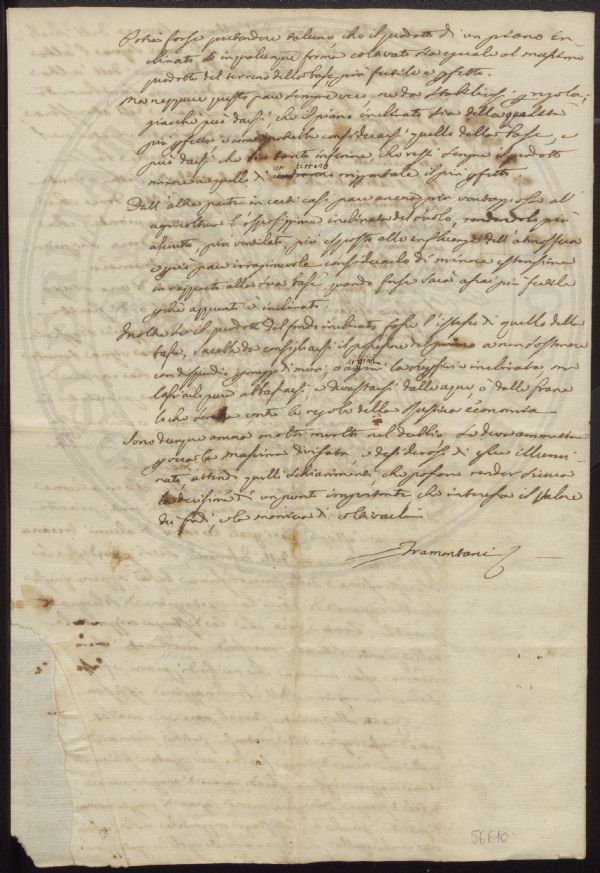 Potrà forse pretendere taluno che il prodotto di un piano in-
clinato di in qualunque forma colavato sia eguale al massimo
prodotto del terreno della base più fertile e perfetto.
Ma neppure questo pare sempre vero ne da stabilirsi per regola;
giacchè può darsi, che il piano inclinato sia della qualità
più perfetta e considerarsi quello della base, e
può darsi che sia tanto inferiore, che resti sempre il prodotto
minore a quello di un terreno orizzontale il più perfetto.
Dall'altra parte in certi casi pare ancora più vantaggiosa all'
agricoltura l'istessissima inclinazione del suolo, rendendolo più
asciutto, più ventilato, più esposto alle influenze dell'atmosfera
e però pare irragionevole considerarlo di minore estensione
in rapporto alla sua base, quando forse sarà assai più fertile
perchè appunto è inclinato.
Inoltre se il prodotto del fondo inclinato fosse l'istesso di quello della
base, sarebbe da consigliarsi il possessore del primo a non sostenere
con dispendio per mezzo di muri, o argini la superficie inclinata, ma
lasciarla pure abbassarsi, e devastarsi dalle acque, o dalle frane
lo che sarebbe contro le regole della rustica economia
Sono dunque ancor molto involto nel dubbio, se deva ammettersi
per vera la massima divisata, e desideroso di essere illumi-
nato attendo quelli schiarimenti, che possono render sicura
la decisione di un punto importante che interessa il valore
dei fondi e la monica di colavarli
Tramontani
56610